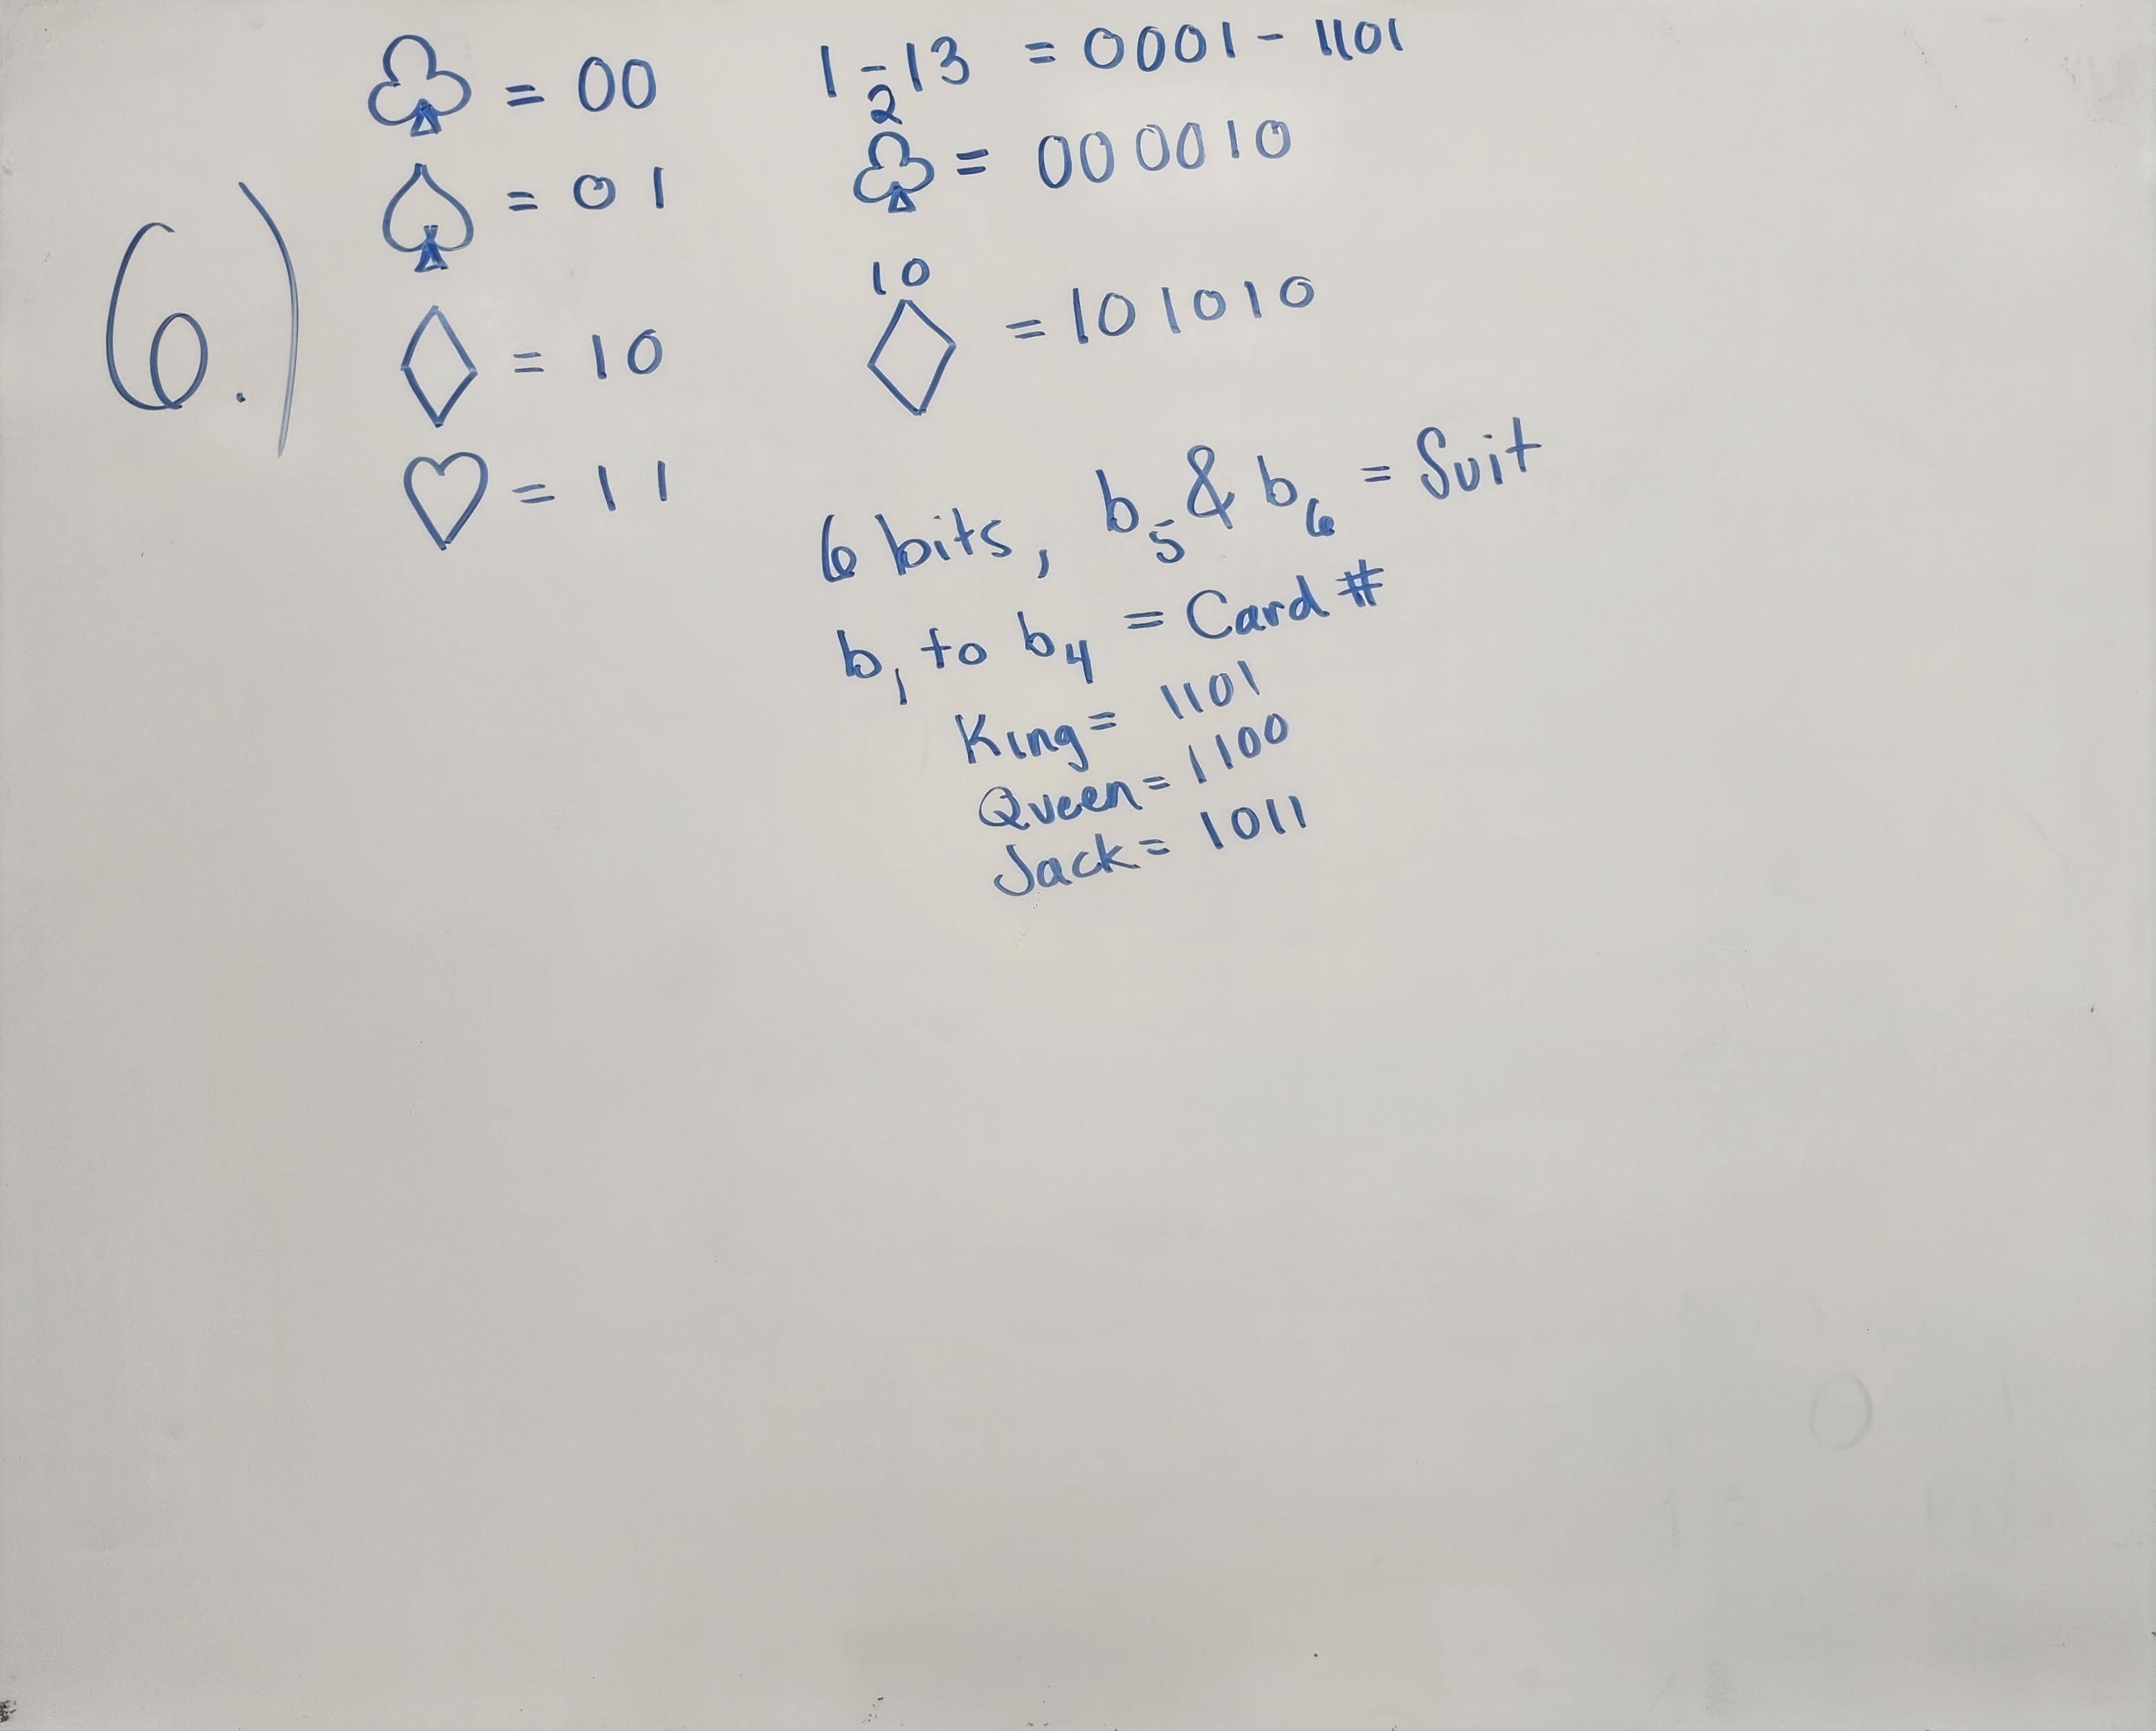 6.)
♧ = 00
♤ = 01
♢ = 10
♡ = 11
1-13 = 0001-1101
2
♧ = 000010
10
♢ = 101010
6 bits, b5 & b6 = Suit
b1 to b4 = Card #
King = 1101
Queen = 1100
Jack = 1011